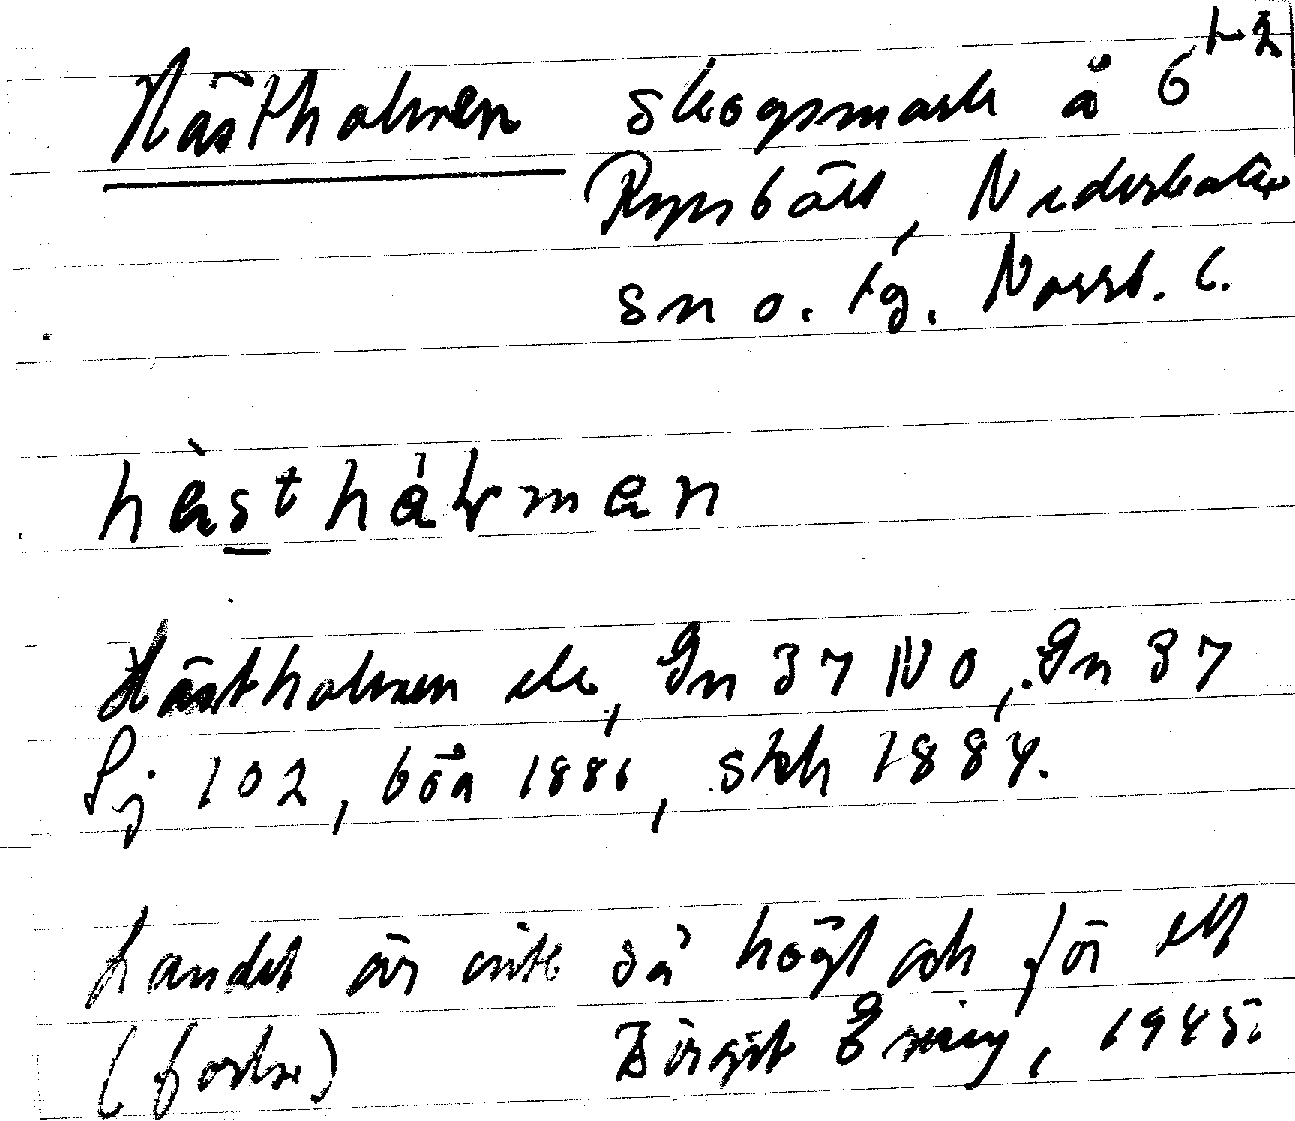 Hästholmen skogsmark å 6 1-2
Rysbält, Nederkalix
sn o. tg. Norrb. l.
hèsthálman
Hästholmen ek, Gn 37 NO, Gn 37
Sj 102, böa 1881, skh 1884.
Landet är inte så högt och för ett
(forts.) Birgit Ering, 1945.